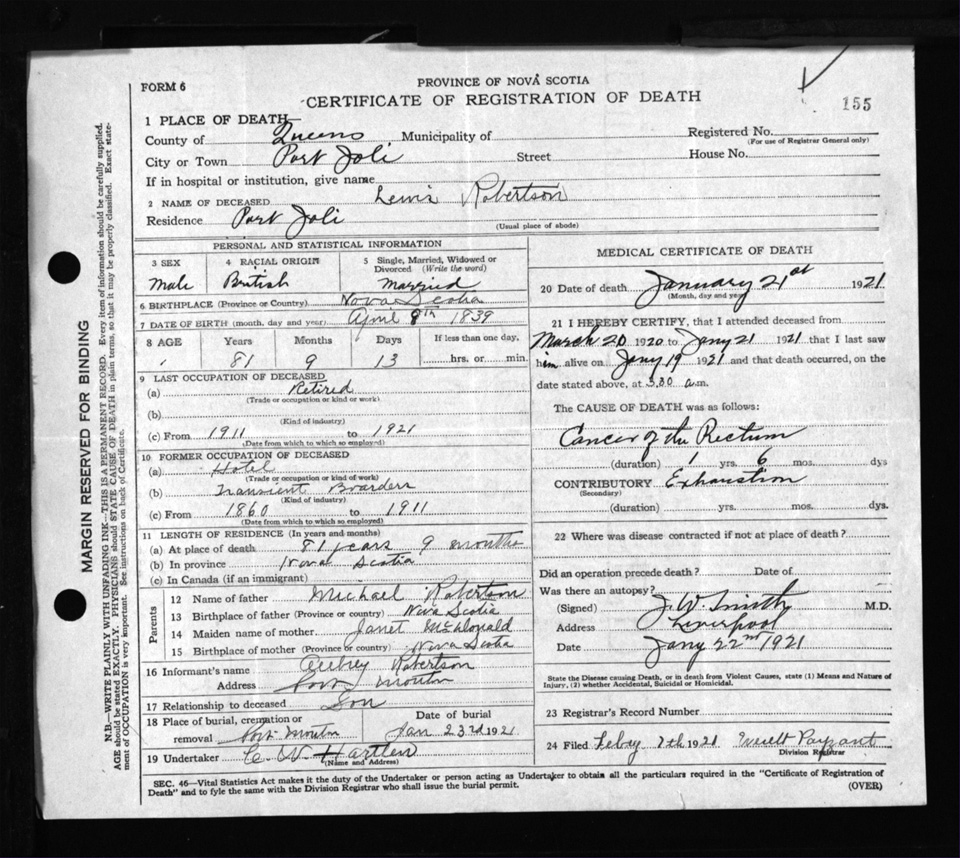 FORM 6
PROVINCE OF NOVA SCOTIA
CERTIFICATE OF REGISTRATION OF DEATH
155
1 PLACE OF DEATH—
County of Queens Municipality of
Registered No.
(For use of Registrar General only)
City or Town Port Joli Street House No.
If in hospital or institution, give name
2 NAME OF DECEASED Lewis Robertson
Residence Port Joli
(Usual place of abode)
PERSONAL AND STATISTICAL INFORMATION
3 SEX
Male
4 RACIAL ORIGIN
British
5 Single, Married, Widowed or
Divorced (Write the word)
Married
6 BIRTHPLACE (Province or Country) Nova Scotia
7 DATE OF BIRTH (month, day and year) April 8th 1839
8 AGE
Years
81
Months
9
Days
13
If less than one day,
hrs. or min.
9 LAST OCCUPATION OF DECEASED
(a) Retired
(Trade or occupation or kind of work)
(b)
(Kind of industry)
(c) From 1911 to 1921
(Date from which to which so employed)
10 FORMER OCCUPATION OF DECEASED
(a) Hotel
(Trade or occupation or kind of work)
(b) Transient Boarders
(Kind of industry)
(c) From 1860 to 1911
(Date from which to which so employed)
11 LENGTH OF RESIDENCE (In years and months)
(a) At place of death 81 years 9 months
(b) In province Nova Scotia
(c) In Canada (if an immigrant)
Parents
12 Name of father Michael Robertson
13 Birthplace of father (Province or country) Nova Scotia
14 Maiden name of mother Janet McDonald
15 Birthplace of mother (Province or country) Nova Scotia
16 Informant's name Aubrey Robertson
Address Port Mouton
17 Relationship to deceased Son
18 Place of burial, cremation or
removal Port Mouton
Date of burial
Jan 23rd 1921
19 Undertaker C. W. Hartlen
(Name and Address)
MEDICAL CERTIFICATE OF DEATH
20 Date of death January 21st 1921
(Month, day and year)
21 I HEREBY CERTIFY, that I attended deceased from
March 20 1920 to Jany 21 1921 that I last saw
him alive on Jany 19 1921 and that death occurred, on the
date stated above, at 3.30 a.m.
The CAUSE OF DEATH was as follows:
Cancer of the Rectum
(duration) 1 yrs. 6 mos. dys
CONTRIBUTORY Exhaustion
(Secondary)
(duration) yrs. mos. dys
22 Where was disease contracted if not at place of death?
Did an operation precede death? Date of
Was there an autopsy?
(Signed) J. W. Smith M.D.
Address Liverpool
Date Jany 22nd 1921
State the Disease causing Death, or in death from Violent Causes, state (1) Means and Nature of
Injury, (2) whether Accidental, Suicidal or Homicidal.
23 Registrar's Record Number
24 Filed Feby 7th 1921 Everett Payzant
Division Registrar
SEC. 46—Vital Statistics Act makes it the duty of the Undertaker or person acting as Undertaker to obtain all the particulars required in the "Certificate of Registration of
Death" and to fyle the same with the Division Registrar who shall issue the burial permit.
(OVER)
MARGIN RESERVED FOR BINDING
N.B.—WRITE PLAINLY WITH UNFADING INK—THIS IS A PERMANENT RECORD. Every item of information should be carefully supplied.
AGE should be stated EXACTLY. PHYSICIANS should STATE CAUSE OF DEATH in plain terms, so that it may be properly classified. Exact state-
ment of OCCUPATION is very important. See instructions on back of Certificate.